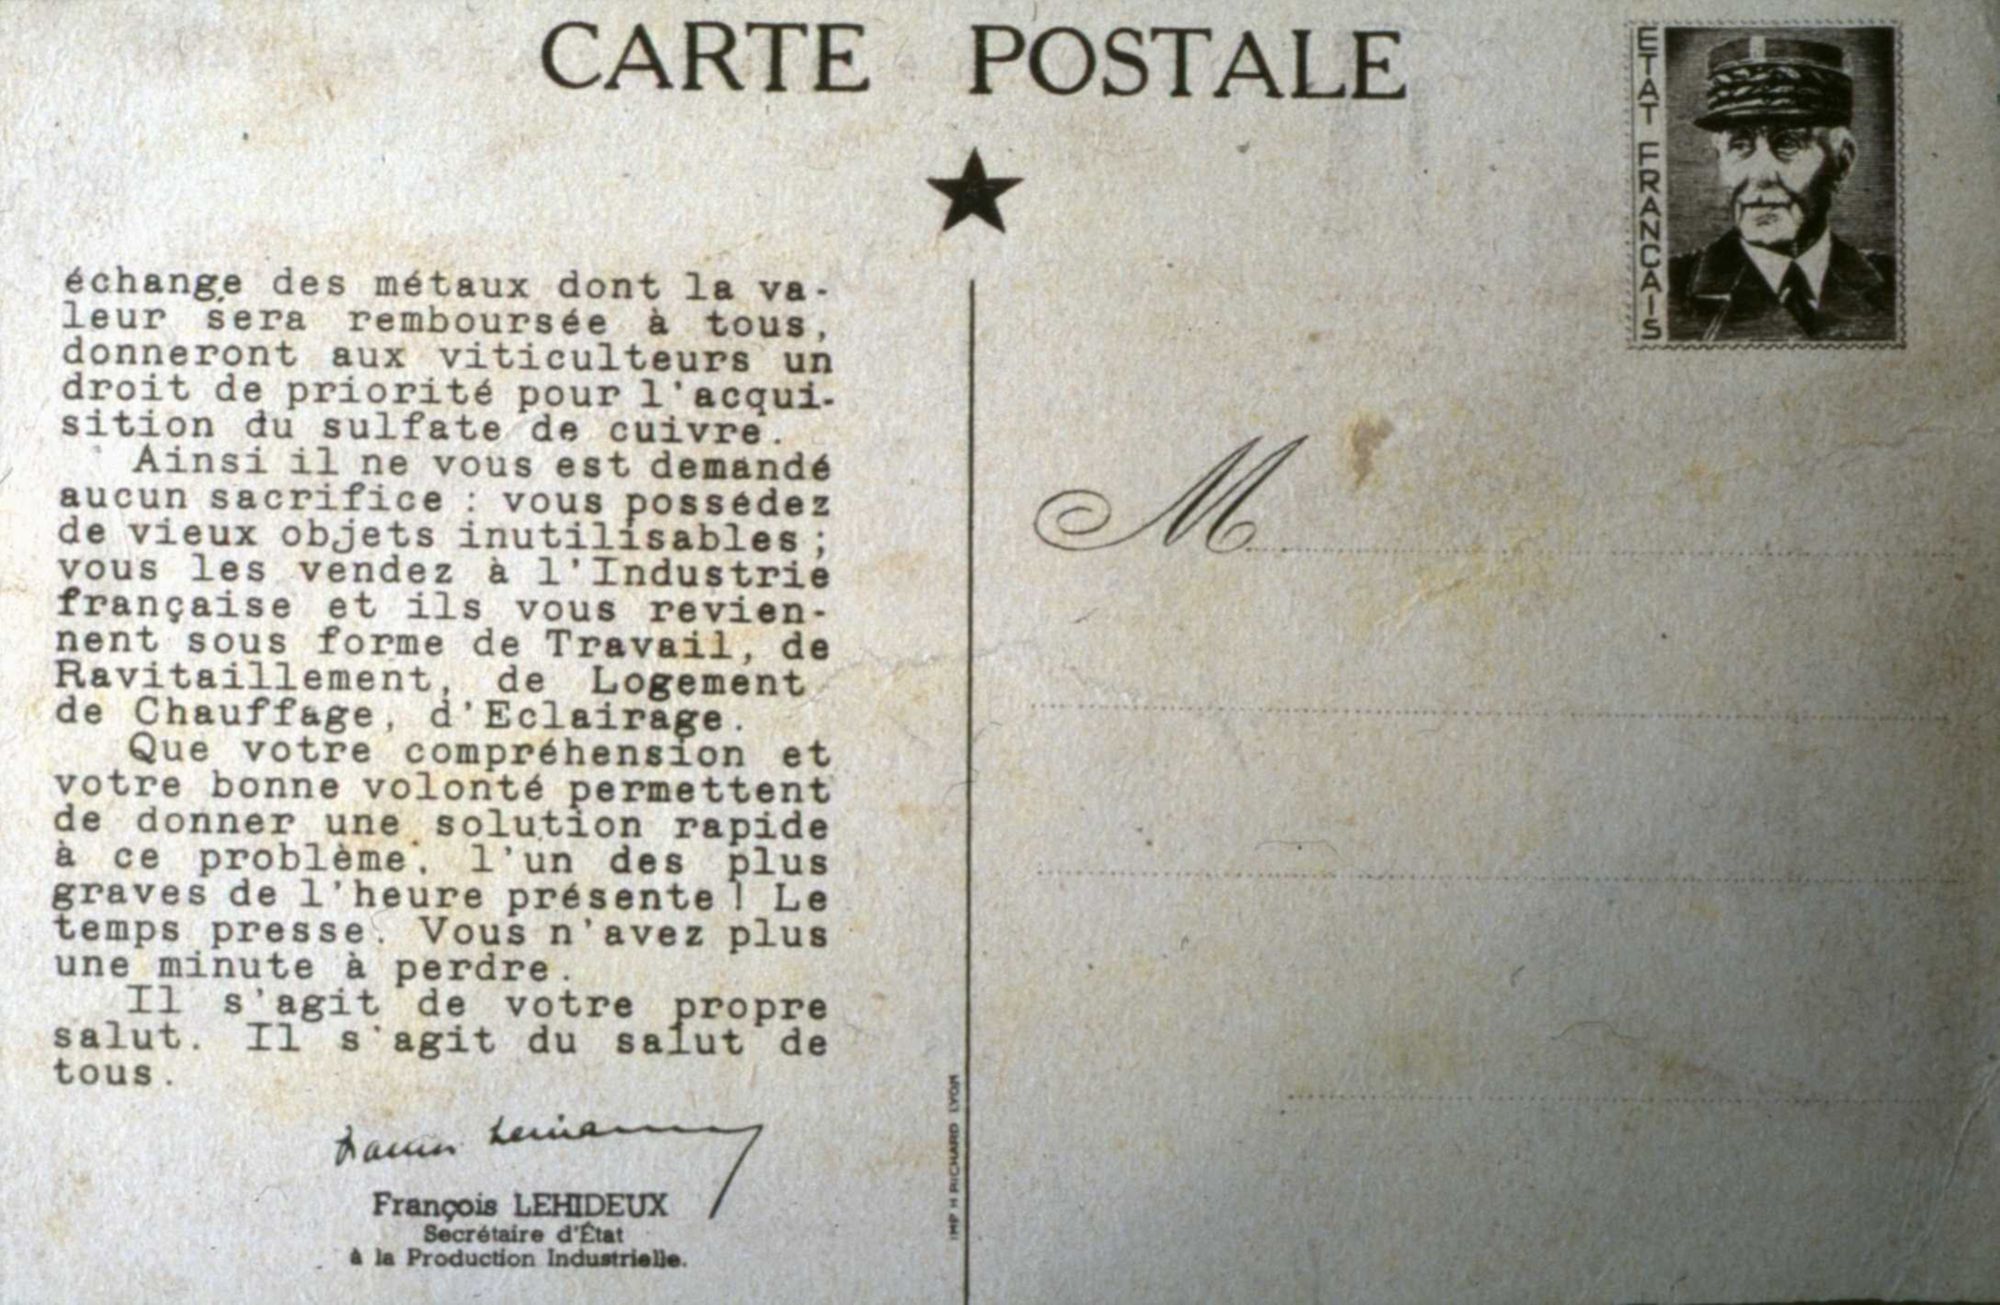 CARTE POSTALE
ETAT FRANÇAIS
échange des métaux dont la va-
leur sera remboursée à tous,
donneront aux viticulteurs un
droit de priorité pour l'acqui-
sition du sulfate de cuivre.
Ainsi il ne vous est demandé
aucun sacrifice : vous possédez
de vieux objets inutilisables ;
vous les vendez à l'Industrie
française et ils vous revien-
nent sous forme de Travail, de
Ravitaillement, de Logement
de Chauffage, d'Eclairage.
Que votre compréhension et
votre bonne volonté permettent
de donner une solution rapide
à ce problème, l'un des plus
graves de l'heure présente ! Le
temps presse. Vous n'avez plus
une minute à perdre.
Il s'agit de votre propre
salut. Il s'agit du salut de
tous.
François LEHIDEUX
Secrétaire d'État
à la Production Industrielle.
IMP H RICHARD LYON
M